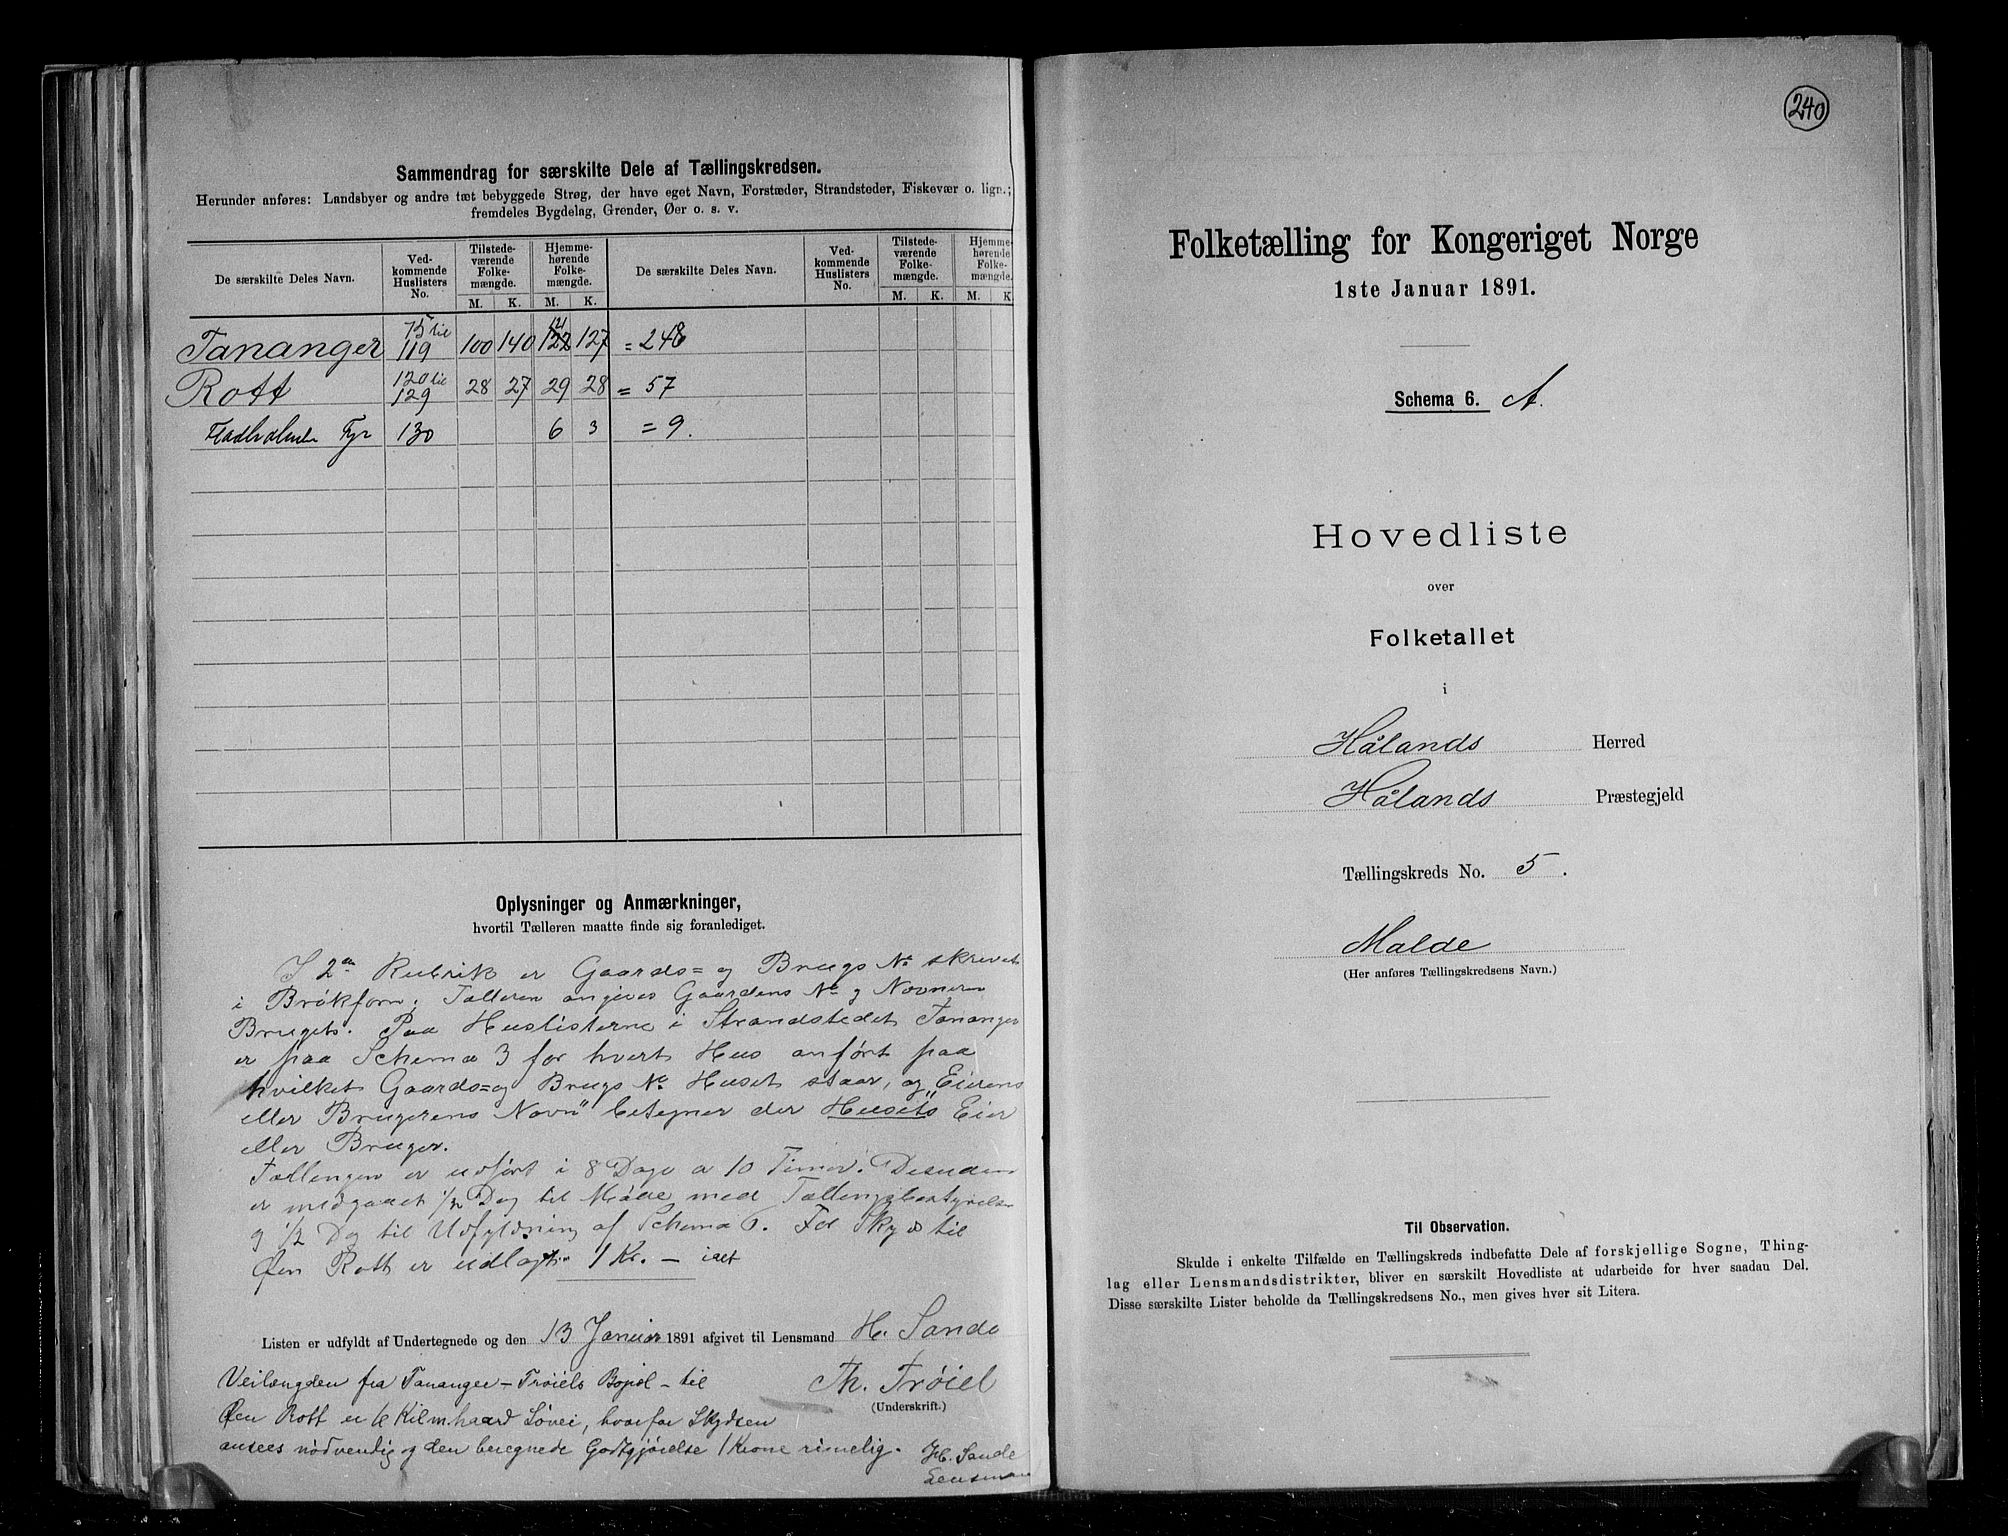 Sammendrag for særskilte Dele af Tællingskredsen.
Herunder anføres: Landsbyer og andre tæt bebyggede Strøg, der have eget Navn, Forstæder, Strandsteder, Fiskevær o. lign.;
fremdeles Bygdelag, Grender, Øer o. s. v.
De særskilte Deles Navn. Ved-kommende Huslisters No. Tilstede-værende Folke-mængde. Hjemme-hørende Folke-mængde. De særskilte Deles Navn. Ved-kommende Huslisters No. Tilstede-værende Folke-mængde. Hjemme-hørende Folke-mængde.
M. K. M. K. M. K. M. K.
Tananger 75 til 119 100 140 122 121 127 = 248
Rott 120 til 129 28 27 29 28 = 57
Fladholmen Fyr 130 6 3 = 9.
Oplysninger og Anmærkninger,
hvortil Tælleren maatte finde sig foranlediget.
I 2den Rubrik er Gaards= og Brugs No skrevet
i Brøkform. Tælleren angiver Gaardens No og Nævneren
Brugets. Paa Huslisterne i Strandstedet Tananger
er paa Schema 3 for hvert Hus anført paa
hvilket Gaards= og Brugs No Huset staar, og „Eierens
eller Brugerens Navn" betegner der Husets Eier
eller Bruger.
Tællingen er udført i 8 Dage a 10 Timer. Desuden
er medgaaet 1/2 Dag til Møde med Tællingsbestyrelse
og 1/2 Dag til Udfyldning af Schema 6. For Skyds til
Øen Rott er udlagt 1 Kr. –
Listen er udfyldt af Undertegnede og den 13 Januar 1891 afgivet til Lensmand H. Sande
Th. Trøiel
(Underskrift.)
Veilængden fra Tananger – Trøiels Bopæl – til
Øen Rott er 6 Kilm haard Søvei, hvorfor Skydsen
ansees nødvendig og den beregnede Godtgjørelse 1 Krone rimelig.
H. Sande
Lensmand
240
Folketælling for Kongeriget Norge
1ste Januar 1891.
Schema 6. A.
Hovedliste
over
Folketallet
i
Hålands Herred
Hålands Præstegjeld
Tællingskreds No. 5.
Malde
(Her anføres Tællingskredsens Navn.)
Til Observation.
Skulde i enkelte Tilfælde en Tællingskreds indbefatte Dele af forskjellige Sogne, Thing-
lag eller Lensmandsdistrikter, bliver en særskilt Hovedliste at udarbeide for hver saadan Del.
Disse særskilte Lister beholde da Tællingskredsens No., men gives hver sit Litera.